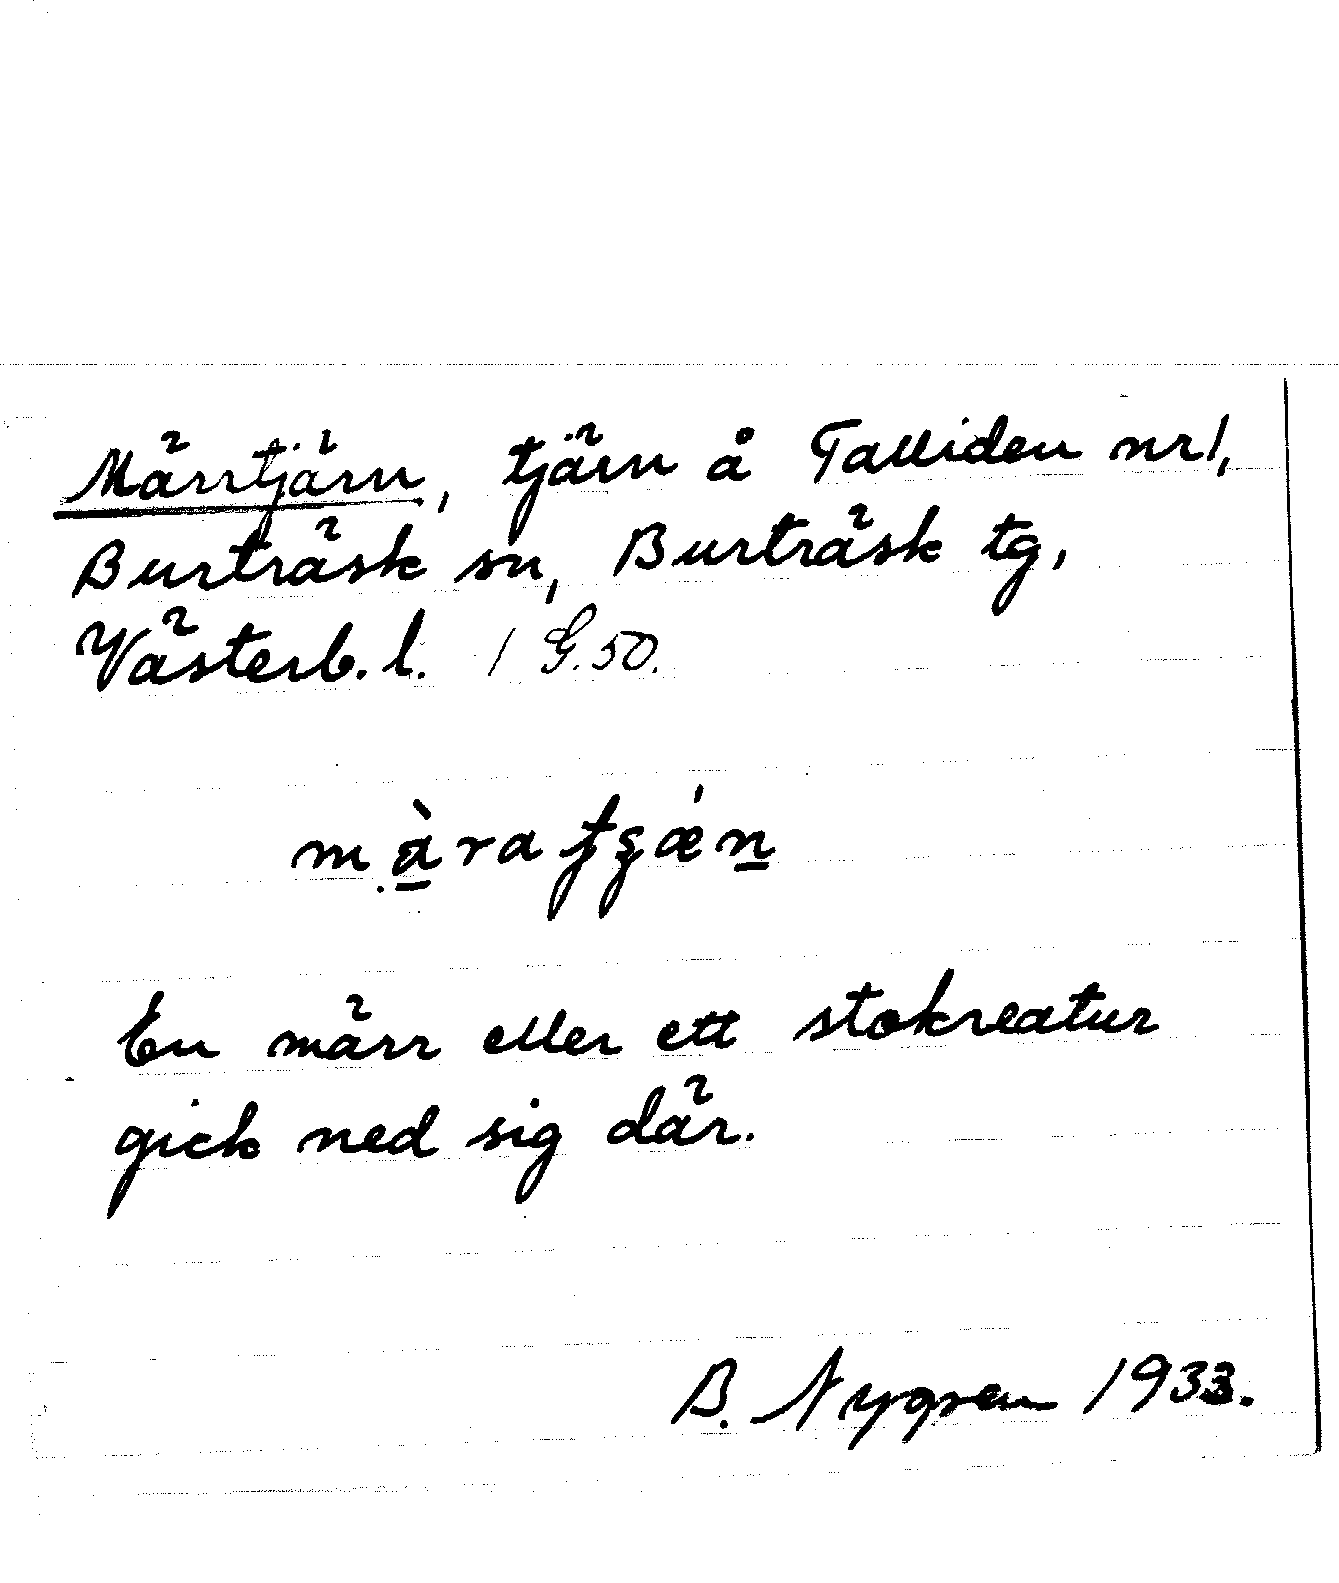 Märrtjärn, tjärn å Talliden nr 1,
Burträsk sn, Burträsk tg,
Västerb. l. / G. 50.
màra tʂǽn
En märr eller ett stokreatur
gick ned sig där.
B. Nygren 1933.